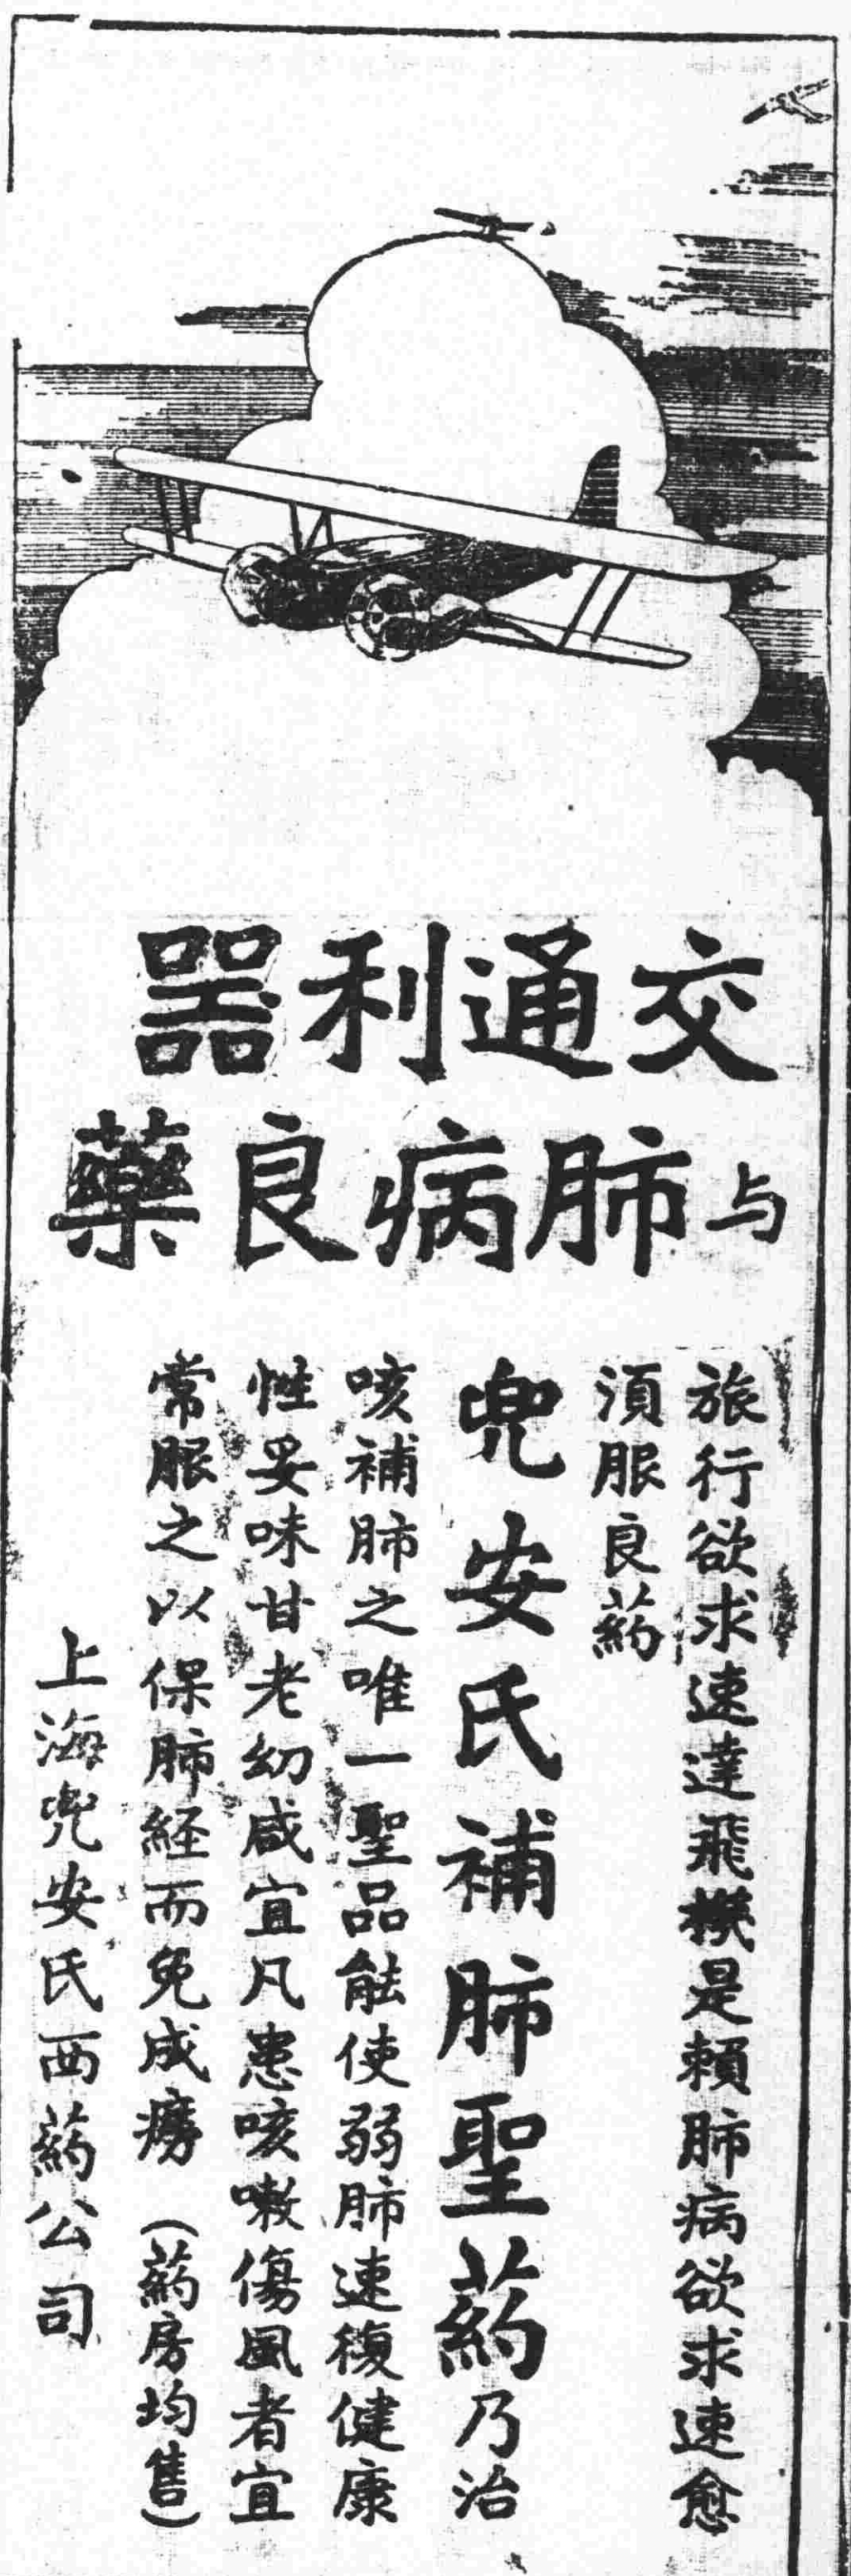 交通利器
与肺病良藥
旅行欲求速達飛機是賴肺病欲求速愈
須服良葯
兜安氏補肺聖葯乃治
咳補肺之唯一聖品能使弱肺速復健康
性妥味甘老幼咸宜凡患咳嗽傷風者宜
常服之以保肺経而免成癆（葯房均售）
上海兜安氏西葯公司